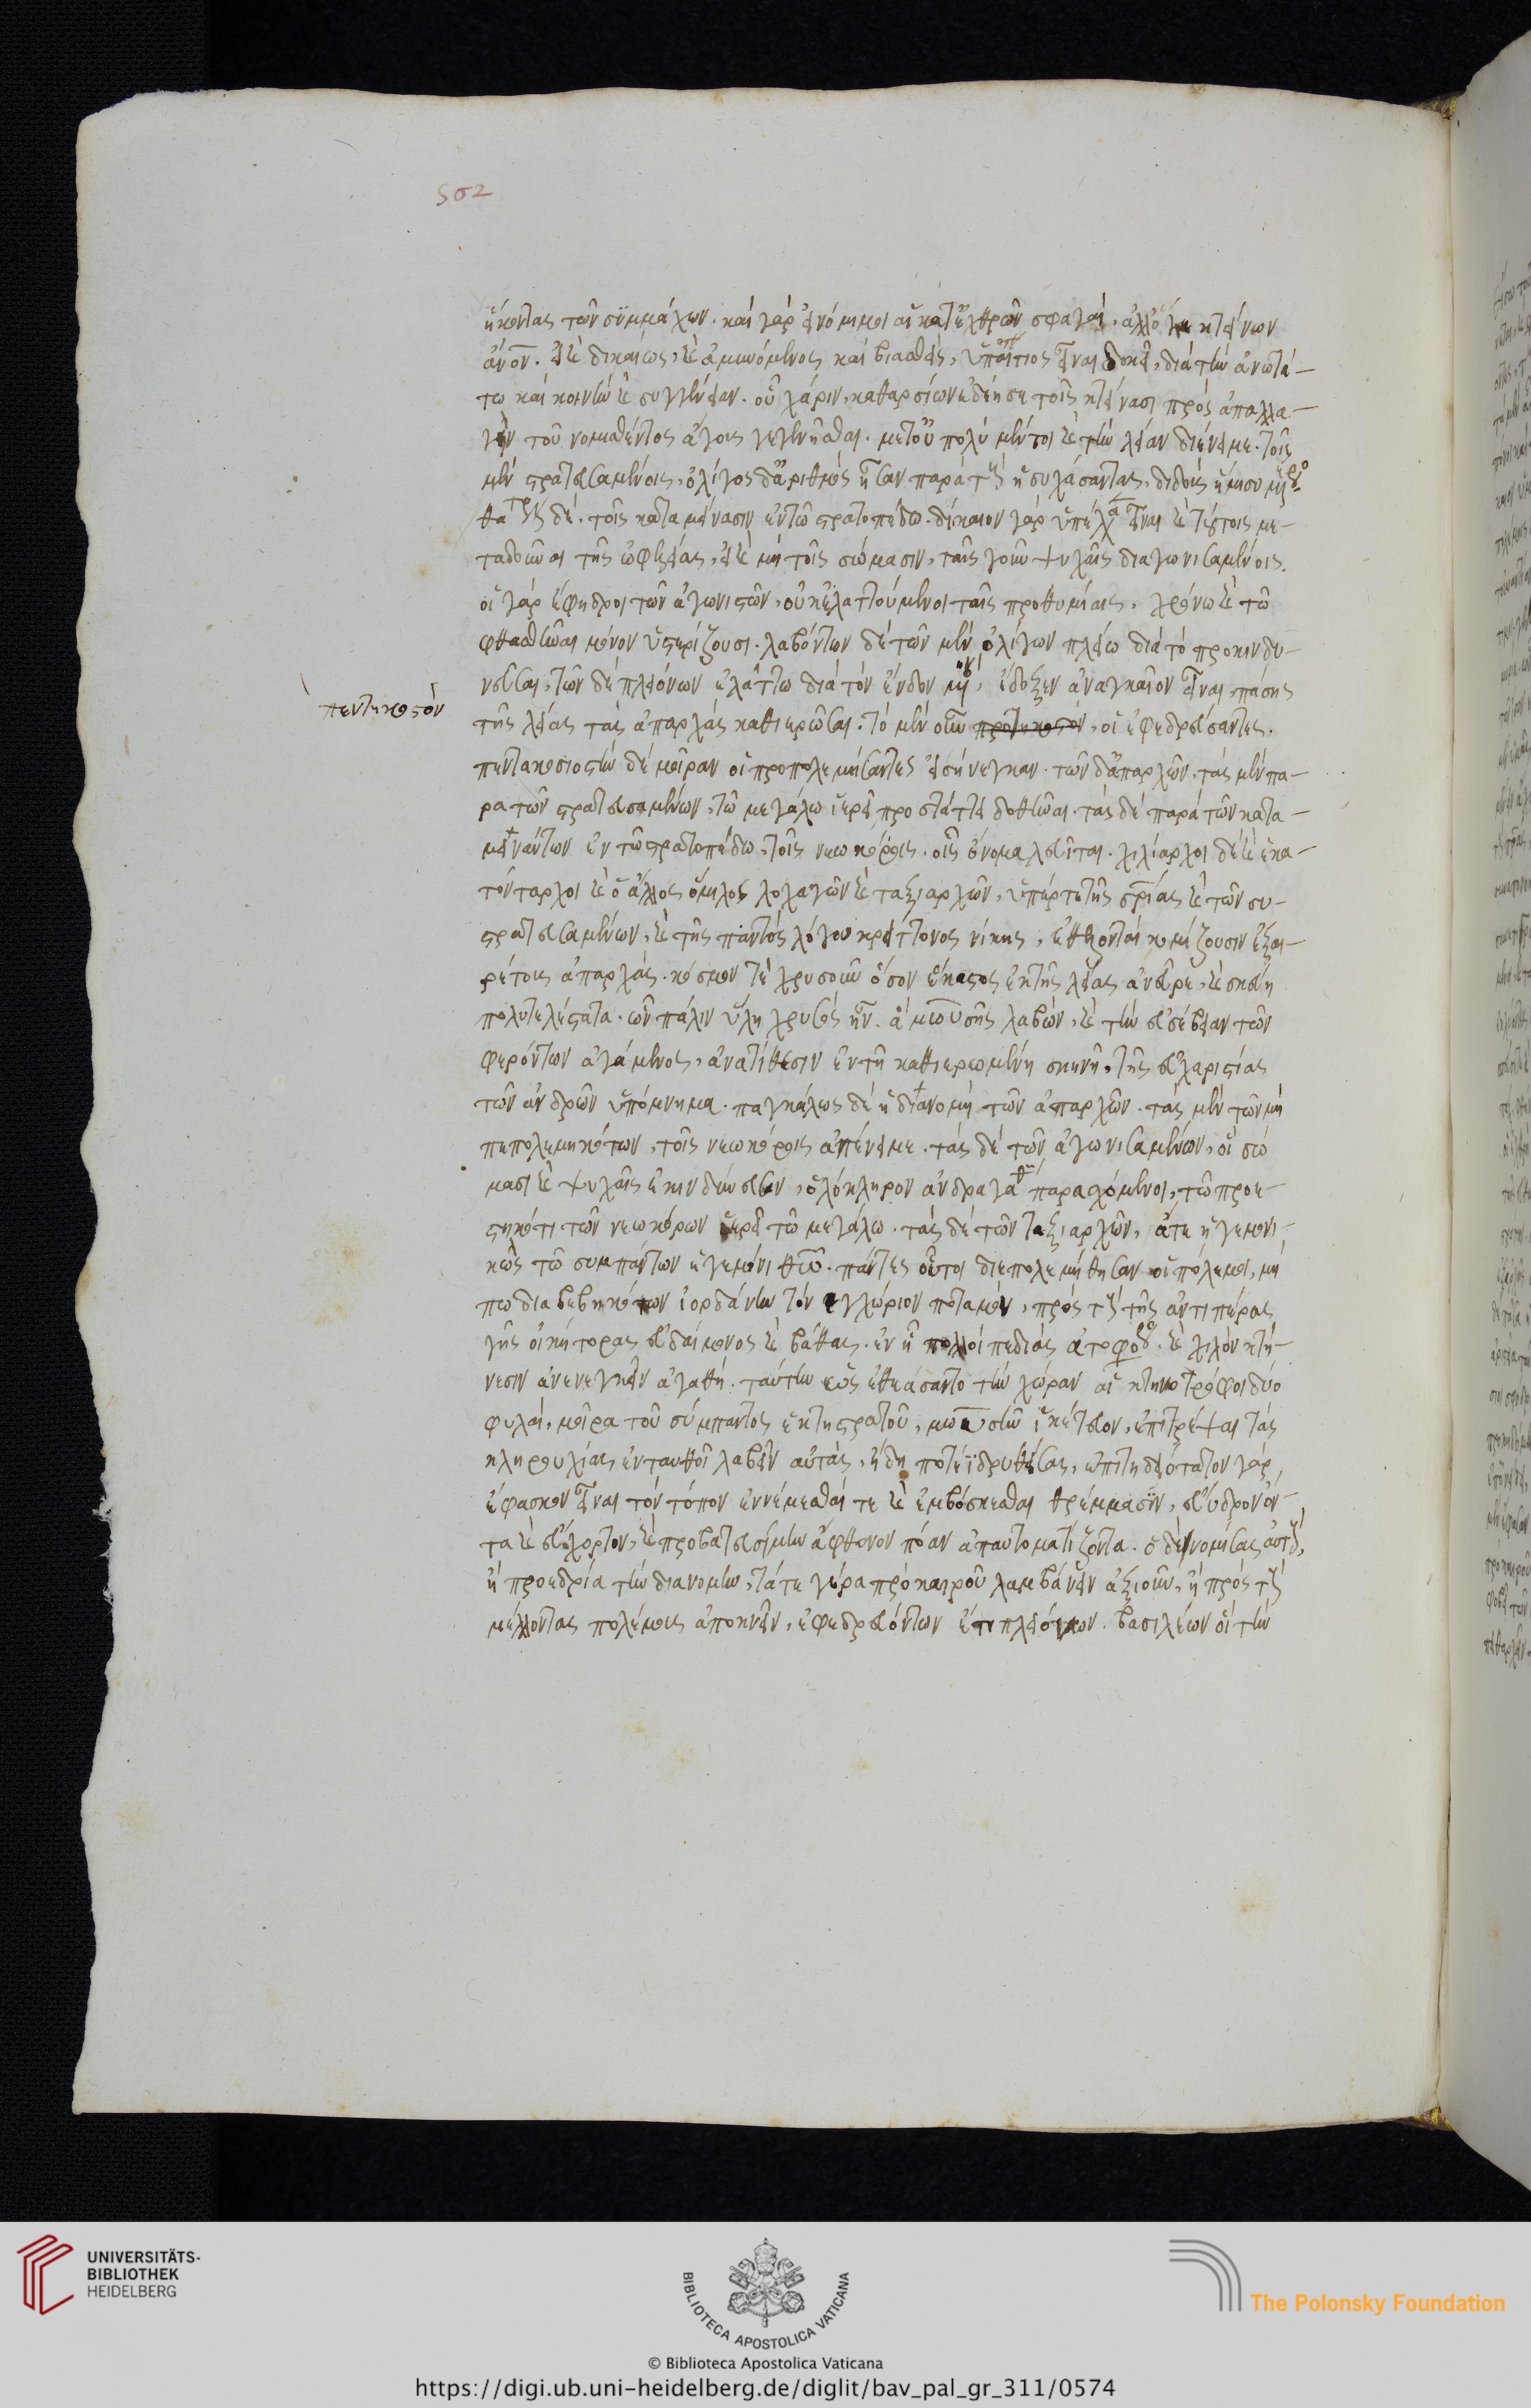 502
ἥκοντας τῶν συμμάχων. καὶ γὰρ εἰ νόμιμοι αἱ κατ' ἐχθρῶν σφαγαί, ἀλλ' ὅ γε κτείνων
ἄνον. εἰ καὶ δικαίως, καὶ ἀμυνόμενος καὶ βιασθεὶς, ὑπαίτιος εἶναι δοκεῖ, διὰ τὴν ἀνωτά-
τω καὶ κοινὴν συγγένειαν. οὗ χάριν, καθαρσίων ἐδέησε τοῖς κτείνασι πρὸς ἀπαλλα-
γὴν τοῦ νομισθέντος ἄγους γεγενῆσθαι. μετ' οὐ πολὺ μέντοι καὶ τὴν λείαν διένειμε. τοῖς
μὲν στρατευσαμένοις, ὀλίγος δ' ἀριθμὸς ἦσαν παρὰ τοὺς ἡσυχάσαντας, διδοὺς ἥμισυ μέρος.
θάτερον δὲ. τοῖς καταμείνασιν ἐν τῷ στρατοπέδω. δίκαιον γὰρ ὑπέλαβεν εἶναι καὶ τούτοις με-
ταδοῦναι τῆς ὠφελείας, εἰ καὶ μὴ τοῖς σώμασιν, ταῖς γοῦν ψυχαῖς διαγωνισαμένοις.
οἱ γὰρ ἔφεδροι τῶν ἀγωνιστῶν, οὐκ ἐλαττούμενοι ταῖς προθυμίαις, χρόνω καὶ τῷ
φθασθῆναι μόνον ὑστερίζουσι. λαβόντων δὲ τῶν μὲν ὀλίγων πλείω διὰ τὸ προκινδυ-
νεῦσαι, τῶν δὲ πλειόνων ἐλάττω διὰ τὸν ἔνδον μονήν, ἔδοξεν ἀναγκαῖον εἶναι, πάσης
πεντηκοστὸν
τῆς λείας τὰς ἀπαρχὰς καθιερῶσαι. τὸ μὲν οὖν προτηκοστὸν, οἱ ἐφεδρεύσαντες.
πεντακοσιοστὴν δὲ μοῖραν οἱ προπολεμήσαντες εἰσήνεγκαν. τῶν δ' ἀπαρχῶν, τὰς μὲν πα-
ρὰ τῶν στρατευσαμένων, τῷ μεγάλω ἱερεῖ προστάττει δοθῆναι. τὰς δὲ παρὰ τῶν κατα-
μεινάντων ἐν τῷ στρατοπέδω, τοῖς νεωκόροις. οἷς ὄνομα λευῖται. χιλίαρχοι δὲ καὶ ἑκα-
τόνταρχοι καὶ ὁ ἄλλος ὅμιλος λοχαγῶν καὶ ταξιαρχῶν, ὑπέρ τε τῆς σωτηρίας καὶ τῶν συ-
στρατευσαμένων, καὶ τῆς παντὸς λόγου κρείττονος νίκης, ἐθελονταὶ κομίζουσιν ἐξαι-
ρέτους ἀπαρχὰς. κόσμον τὲ χρυσοῦν ὅσον ἕκαστος ἐκ τῆς λείας ἀνεῦρε, καὶ σκεύη
πολυτελέστατα. ὧν πάλιν ὕλη χρυσὸς ἦν. ἃ μωυσῆς λαβὼν, καὶ τὴν εὐσέβειαν τῶν
φερόντων ἀγάμενος, ἀνατίθησιν ἐν τῇ καθιερωμένη σκηνῇ, τῆς εὐχαριστίας
τῶν ἀνδρῶν ὑπόμνημα. παγκάλως δὲ ἡ διανομὴ τῶν ἀπαρχῶν. τὰς μὲν τῶν μὴ
πεπολεμηκότων, τοῖς νεωκόροις ἀπένειμε. τὰς δὲ τῶν ἀγωνισαμένων, οἳ σώ
μασι καὶ ψυχαῖς ἐκινδύνευσαν, ὁλόκληρον ἀνδραγαθίαν παρασχόμενοι, τῷ προε-
στηκότι τῶν νεωκόρων ἱερεῖ τῷ μεγάλω. τὰς δὲ τῶν ταξιαρχῶν, ἅτε ἡγεμονι-
κὰς τῷ συμπάντων ἡγεμόνι θεῶ. πάντες οὗτοι διεπολεμήθησαν οἱ πόλεμοι, μή
πω διαβεβηκότων ἰορδάνην τὸν ἐγχώριον ποταμὸν, πρὸς τοὺς τῆς ἀντιπέρας
γῆς οἰκήτορας εὐδαίμονος καὶ βαθείας. ἐν ᾗ πολλὴ πεδιὰς σιτοφόρος, καὶ χιλὸν κτή-
νεσιν ἀνενεγκεῖν ἀγαθή. ταύτην ὡς ἐθεάσαντο τὴν χώραν αἱ κτηνοτρόφοι δύο
φυλαὶ, μοῖρα τοῦ σύμπαντος ἕκτη στρατοῦ, μωυσῆν ἱκέτευον, ἐπιτρέψαι τὰς
κληρουχίας ἐνταυθοῖ λαβεῖν αὐτὰς, ἤδη ποτὲ ἱδρυθείσας, ἐπιτηδειότατον γὰρ
ἔφασκον εἶναι τὸν τόπον ἐννέμεσθαί τε καὶ ἐμβόσκεσθαι θρέμμασιν, εὔυδρον ὄν-
τα καὶ εὔχορτον, καὶ προβατευσίμην ἄφθονον πόαν ἀπαυτοματίζοντα. ὁ δὲ νομίσας αὐτοὺς,
ἢ προεδρία τὴν διανομὴν, τά τε γέρα πρὸ καιροῦ λαμβάνειν ἀξιοῦν, ἢ πρὸς τοὺς
μέλλοντας πολέμους ἀποκνεῖν, ἐφεδρευόντων ἔτι πλειόνων. βασιλέων οἳ τὴν
UNIVERSITÄTS-
BIBLIOTHEK
HEIDELBERG
BIBLIOTECA APOSTOLICA VATICANA
The Polonsky Foundation
© Biblioteca Apostolica Vaticana
https://digi.ub.uni-heidelberg.de/diglit/bav_pal_gr_311/0574